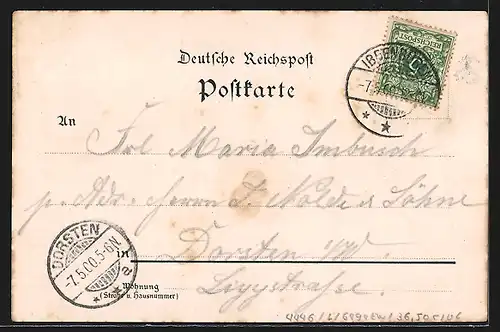 Deutsche Reichspost
Postkarte
REICHSPOST
5
IBBENBÜREN
-7.5.00
An
Frl Maria Imbusch
p. Adr. Herrn T. Nolde & Söhne
in Dorsten i/W.
DORSTEN
-7.5.00.5-6N.
Wohnung
(Straße u. Hausnummer)
Lippstraße.